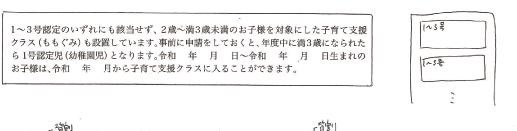 1～3号認定のいずれにも該当せず、2歳～満3歳未満のお子様を対象にした子育て支援
クラス(ももぐみ)も設置しています。事前に申請をしておくと、年度中に満3歳になられた
ら1号認定児(幼稚園児)となります。令和　年　月　日～令和　年　月　日生まれの
お子様は、令和　年　月から子育て支援クラスに入ることができます。
1～3号
1～3号